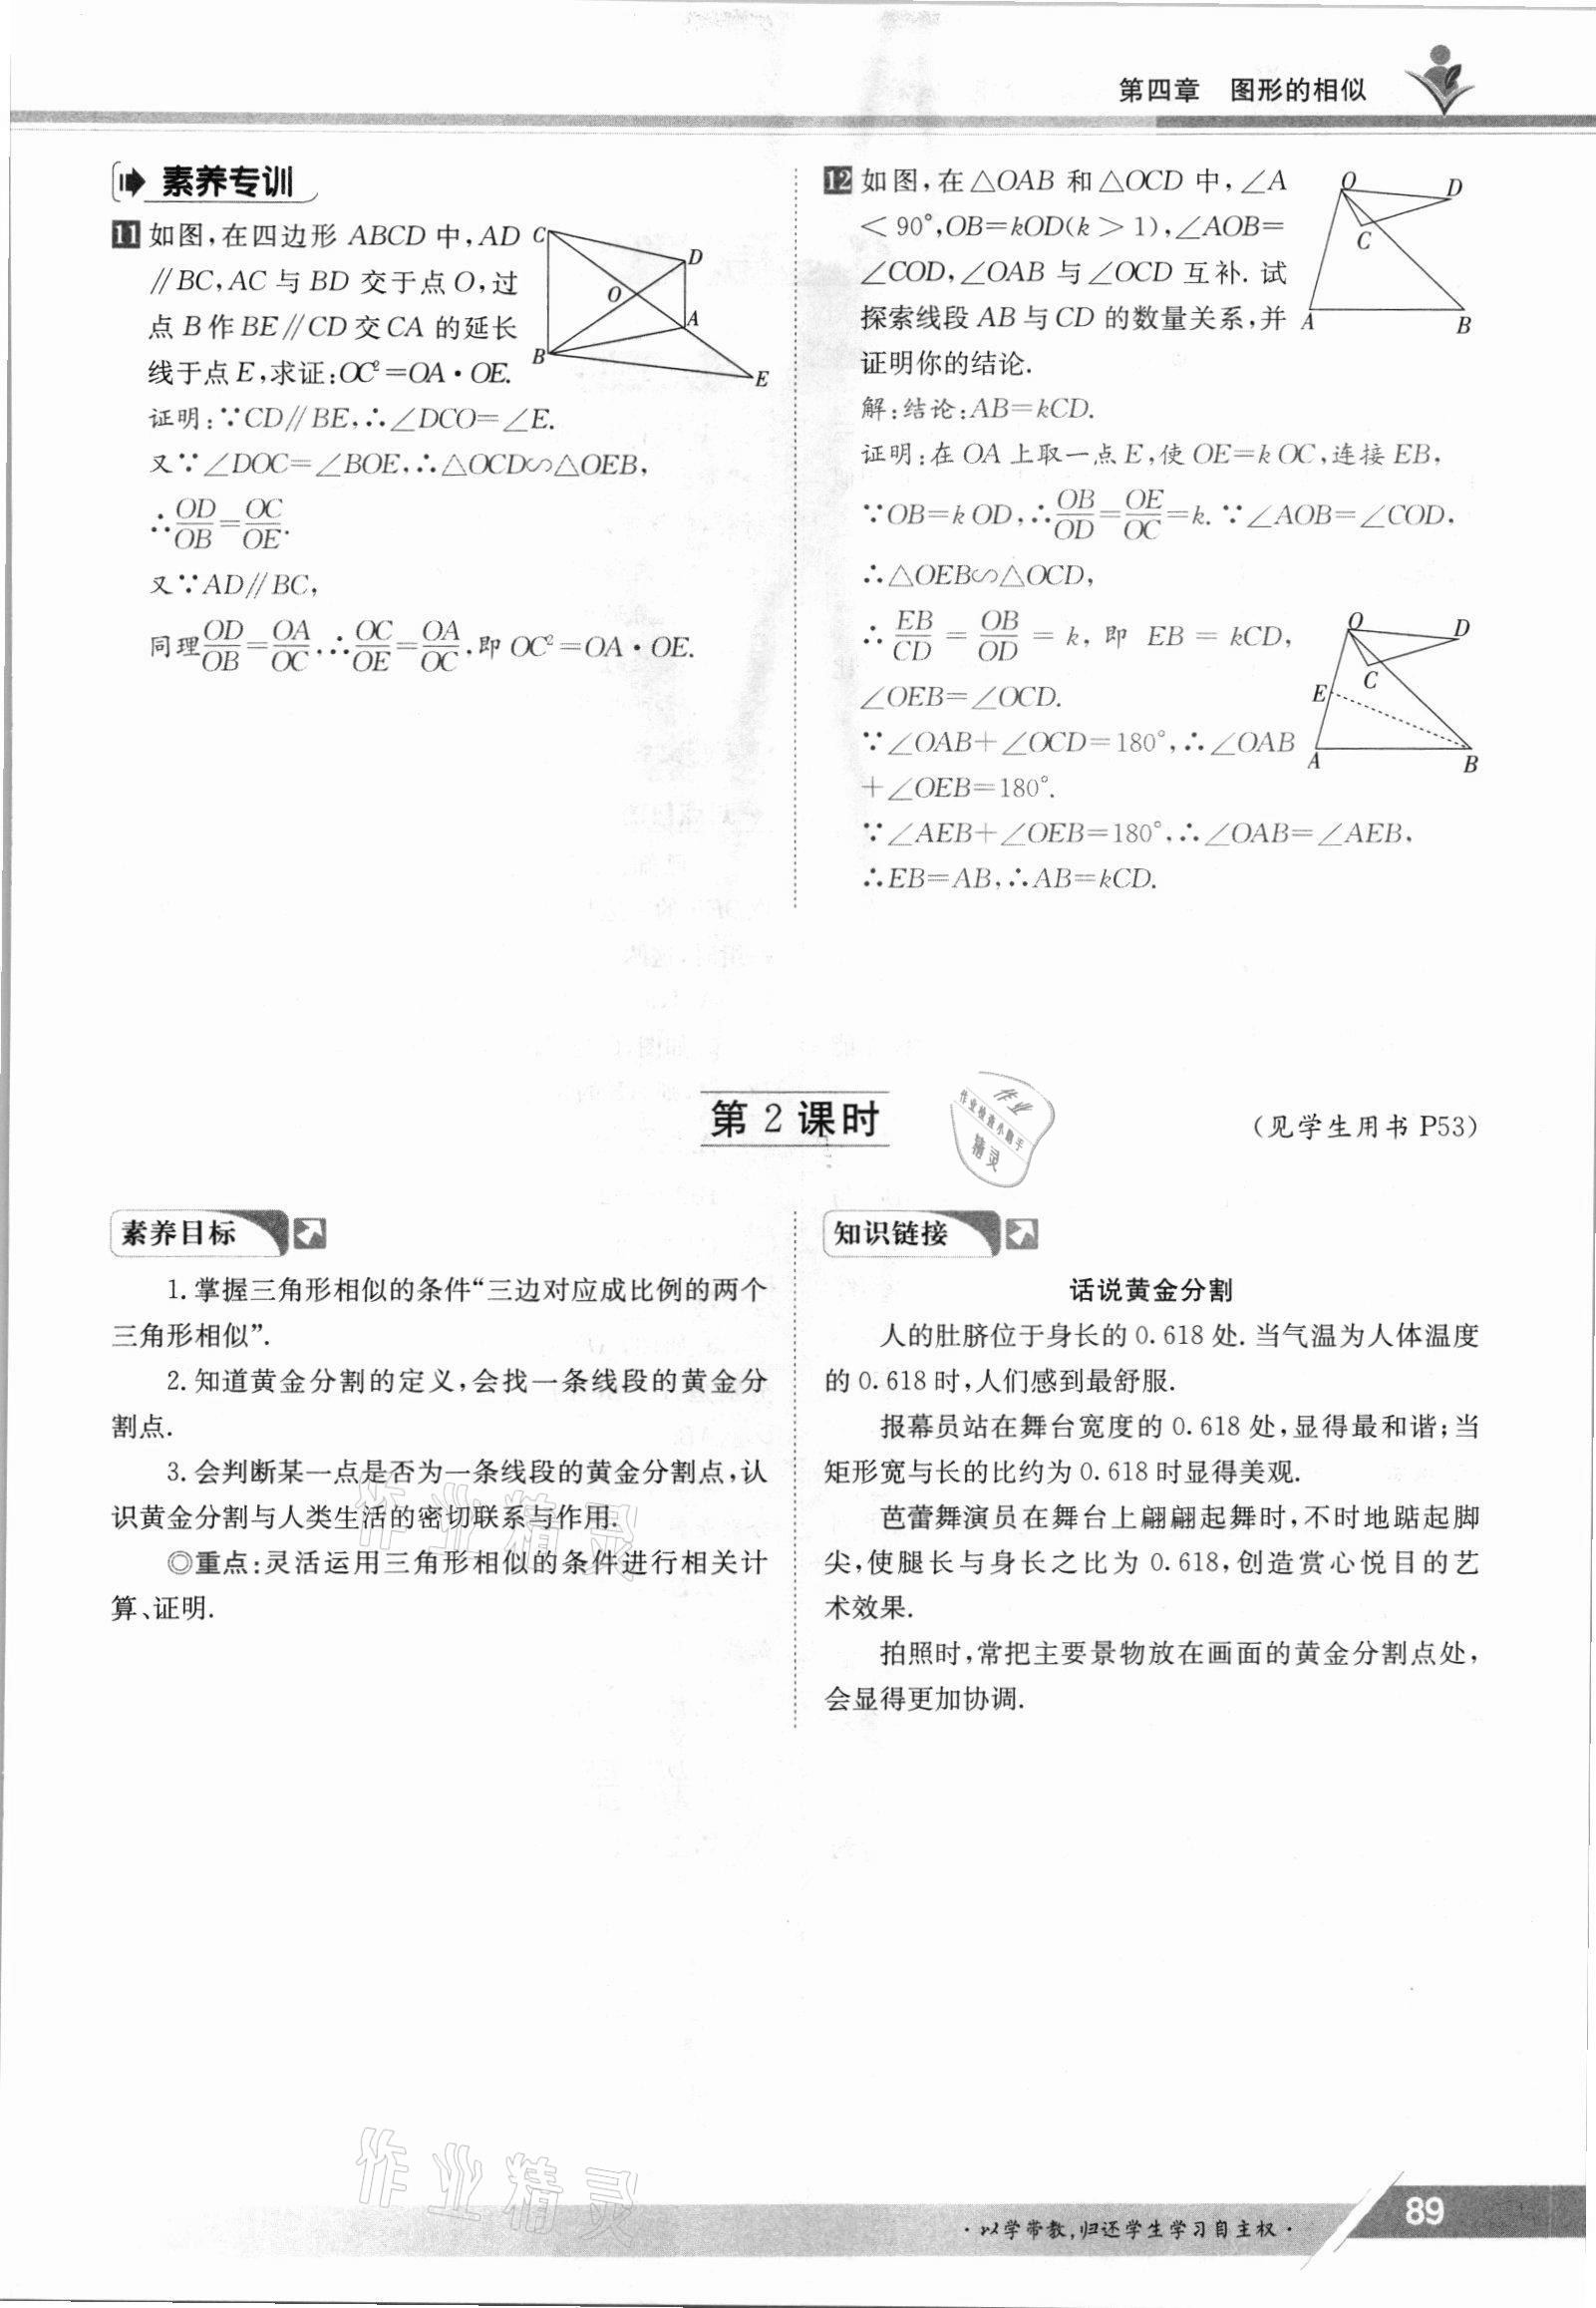 第四章 图形的相似
素养专训
11 如图,在四边形 ABCD 中,AD
∥BC,AC 与 BD 交于点 O,过
点 B 作 BE∥CD 交 CA 的延长
线于点 E,求证:OC²=OA·OE.
C
D
O
A
B
E
证明:∵CD∥BE,∴∠DCO=∠E.
又∵∠DOC=∠BOE,∴△OCD∽△OEB,
∴OD/OB=OC/OE.
又∵AD∥BC,
同理OD/OB=OA/OC,∴OC/OE=OA/OC,即 OC²=OA·OE.
12 如图,在△OAB 和△OCD 中,∠A
<90°,OB=kOD(k>1),∠AOB=
∠COD,∠OAB 与∠OCD 互补.试
探索线段 AB 与 CD 的数量关系,并
证明你的结论.
O
D
C
A
B
解:结论:AB=kCD.
证明:在 OA 上取一点 E,使 OE=kOC,连接 EB,
∵OB=kOD,∴OB/OD=OE/OC=k.∵∠AOB=∠COD,
∴△OEB∽△OCD,
∴EB/CD=OB/OD=k,即 EB=kCD,
∠OEB=∠OCD.
∵∠OAB+∠OCD=180°,∴∠OAB
+∠OEB=180°.
∵∠AEB+∠OEB=180°,∴∠OAB=∠AEB,
∴EB=AB,∴AB=kCD.
O
D
C
E
A
B
第 2 课时
(见学生用书 P53)
作业
作业检查小助手
精灵
素养目标
1.掌握三角形相似的条件“三边对应成比例的两个
三角形相似”.
2.知道黄金分割的定义,会找一条线段的黄金分
割点.
3.会判断某一点是否为一条线段的黄金分割点,认
识黄金分割与人类生活的密切联系与作用.
◎重点:灵活运用三角形相似的条件进行相关计
算、证明.
知识链接
话说黄金分割
人的肚脐位于身长的 0.618 处.当气温为人体温度
的 0.618 时,人们感到最舒服.
报幕员站在舞台宽度的 0.618 处,显得最和谐;当
矩形宽与长的比约为 0.618 时显得美观.
芭蕾舞演员在舞台上翩翩起舞时,不时地踮起脚
尖,使腿长与身长之比为 0.618,创造赏心悦目的艺
术效果.
拍照时,常把主要景物放在画面的黄金分割点处,
会显得更加协调.
作业精灵
作业精灵
·以学带教,归还学生学习自主权·
89